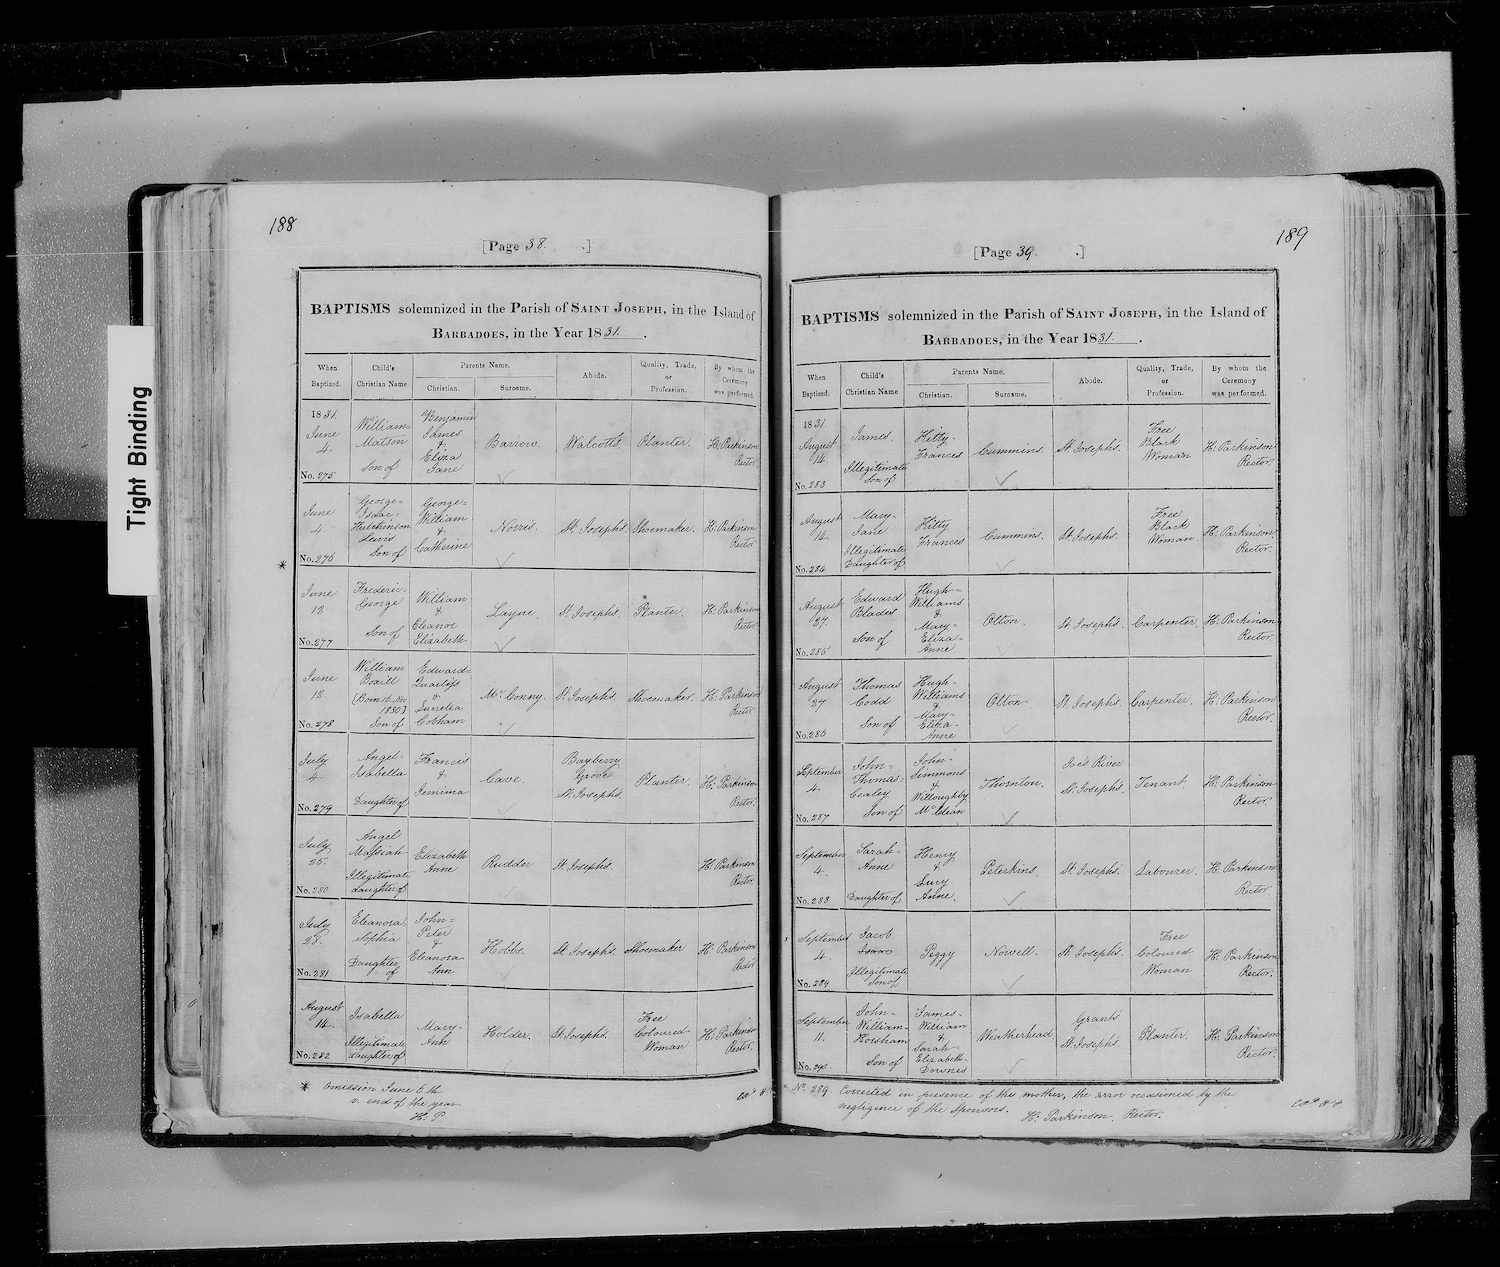 Tight Binding
188
[Page 38. .]
BAPTISMS solemnized in the Parish of SAINT JOSEPH, in the Island of
BARBADOES, in the Year 1831.
When Baptized. Child's Christian Name Parents Name. Christian. Surname. Abode. Quality, Trade, or Profession. By whom the Ceremony was performed.
1831.
June
4
No. 275
William-
Matson
Son of
Benjamin
James
&
Eliza
Jane
Barrow.
Walcott's
Planter.
H: Parkinson
Rector
June
4
No. 276
George-
Isaac-
Hutchinson
Lewis
Son of
George-
William
&
Catherine
Norris.
St. Josephs.
Shoemaker.
H: Parkinson
Rector
*
June
12
No. 277
Frederic-
George
Son of
William
&
Eleanor
Elizabeth
Layne.
St. Josephs.
Planter.
H: Parkinson
Rector
June
12
No. 278
William
1830]
Son of
Edward-
&
Cobham
Mc. Conny.
St. Josephs.
Shoemaker.
H: Parkinson
Rector
July
4
No. 279
Angel-
Isabella
Daughter of
Francis
&
Jemima
Cave.
Bayberry
Grove
St. Josephs.
Planter.
H: Parkinson
Rector.
July
25.
No. 280
Angel
Massiah
Illegitimate
daughter of
Elizabeth
Anne
Rudder
St. Josephs.
H: Parkinson
Rector.
July
28.
No. 281
Eleanora
Sophia
Daughter
of
John-
Peter
&
Eleanora-
Ann
Hobbs.
St. Josephs.
Shoemaker
H: Parkinson
Rector
August
14.
No. 282
Isabella
Illegitimate
daughter of
Mary-
Ann
Holder.
St. Josephs.
Free
Coloured
Woman
H: Parkinson
Rector.
* Omission June 5th
v. end of the year
H. P.
189
[Page 39. .]
BAPTISMS solemnized in the Parish of SAINT JOSEPH, in the Island of
BARBADOES, in the Year 1831.
When Baptized. Child's Christian Name Parents Name. Christian. Surname. Abode. Quality, Trade, or Profession. By whom the Ceremony was performed.
1831
August
14.
No. 283
James.
Illegitimate
Son of
Kitty-
Frances
Cummins.
St. Josephs.
Free
Black
Woman
H: Parkinson
Rector.
August
14.
No. 284
Mary-
Jane
Illegitimate
Daughter of
Kitty
Frances
Cummins.
St. Josephs.
Free
Black
Woman
H. Parkinson
Rector.
August
27
No. 285
Edward
Blades
Son of
Hugh-
Williams
&
Mary-
Eliza-
Anne
Olton.
St. Josephs.
Carpenter.
H: Parkinson
Rector
August
27
No. 286
Thomas
Codd
Son of
Hugh-
Williams
&
Mary-
Eliza-
Anne
Olton
St. Josephs.
Carpenter.
H: Parkinson
Rector.
September
4.
No. 287
John-
Thomas-
Cealey
Son of
John-
Simmons
&
Willoughby
Thornton.
Joes River
St. Josephs.
Tenant.
H: Parkinson
Rector.
September
4.
No. 288
Sarah-
Anne
Daughter of
Henry
&
Lucy
Anne.
Peterkins.
St. Josephs.
Labourer.
H: Parkinson
Rector
September
4.
No. 289
Jacob
Isaac
Illegitimate
Son of
Peggy
Nowell.
St. Josephs.
Free
Coloured
Woman
H: Parkinson
Rector.
September
11.
No. 290
John-
William-
Horsham
Son of
James-
William
&
Sarah-
Elizabeth-
Downes
Weatherhead
Grants
St. Josephs
Planter.
H: Parkinson
Rector.
No. 289 Corrected in presence of the mother, the error occasioned by the
negligence of the sponsors. H: Parkinson, Rector.